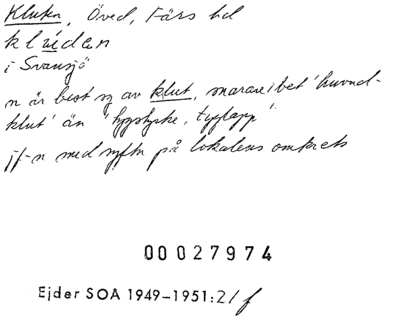 Kluten, Öved, Färs hd
klúdan
i Svansjö
n är best sg av klut, snarare i bet 'huvud-
klut' än 'tygstycke, tyglapp'
jf-n med syftn på lokalens omkrets
00027974
Ejder SOA 1949-1951:2/f